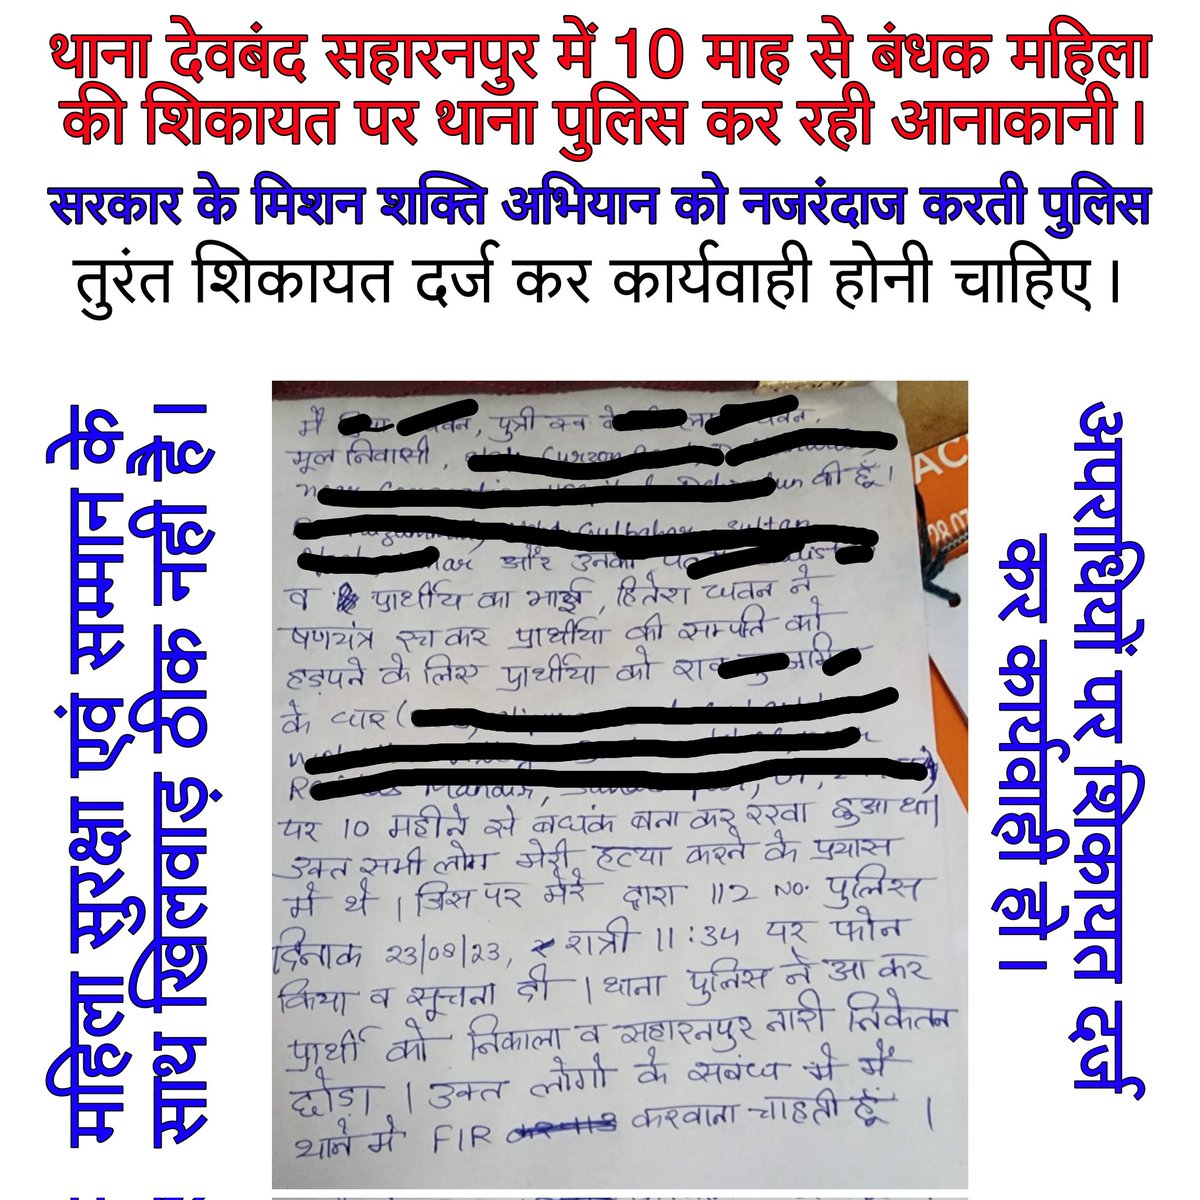 थाना देवबंद सहारनपुर में 10 माह से बंधक महिला
की शिकायत पर थाना पुलिस कर रही आनाकानी।
सरकार के मिशन शक्ति अभियान को नजरंदाज करती पुलिस
तुरंत शिकायत दर्ज कर कार्यवाही होनी चाहिए।
महिला सुरक्षा एवं सम्मान के
साथ खिलवाड़ ठीक नही है।
मै पुत्री स्व
मूल निवासी,
की हूँ।
और उनका
व प्रार्थीय का भाई, हितेश धवन ने
षणयंत्र रच कर प्रार्थीया की सम्पति को
हड़पने के लिए प्रार्थीया को
के घार (
पर 10 महीने से बधंक बना कर रखा हुआ था।
उक्त सभी लोग मेरी हत्या करने के प्रयास
मे थे। जिस पर मेरे द्वारा 112 No. पुलिस
दिनाक 23/08/23, रात्री 11:34 पर फोन
किया व सूचना दी। थाना पुलिस ने आ कर
प्रार्थी को निकाला व सहारनपुर नारी निकेतन
छोडा। उक्त लोगो के सबंध मे मैं
थाने मे FIR करवाना चाहती हूँ।
अपराधियों पर शिकायत दर्ज
कर कार्यवाही हो।